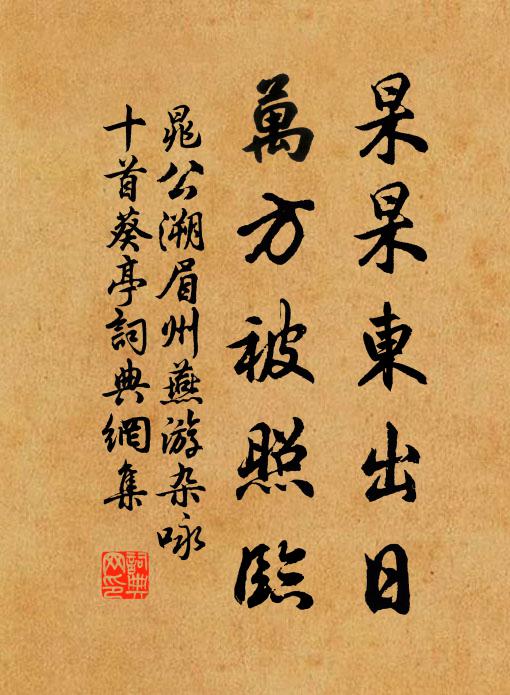 杲杲東出日
萬方被照臨
晁公溯眉州燕游杂咏
十首葵亭詞典網集
詞典
网印